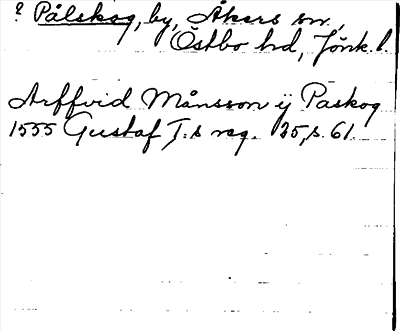 ? Pålskog, by, Åkers sn.,
Östbo hd, Jönk. l.
Arffvid Månsson ij Paskog
1555 Gustaf I:s reg. 25, s. 61.